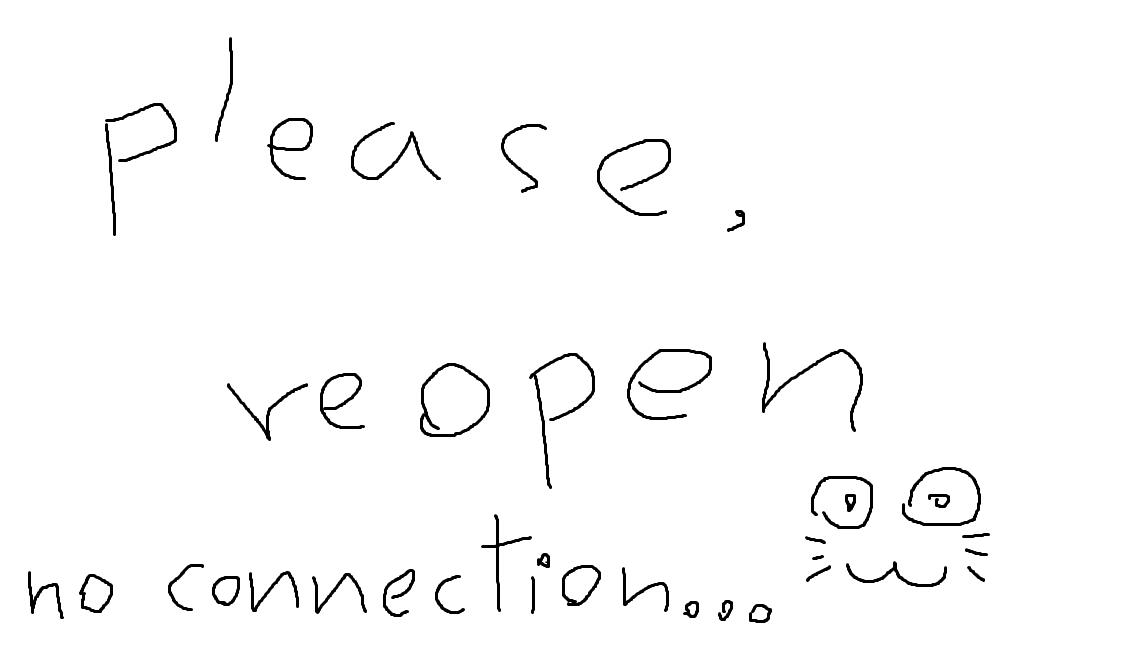 please,
reopen
no connection...